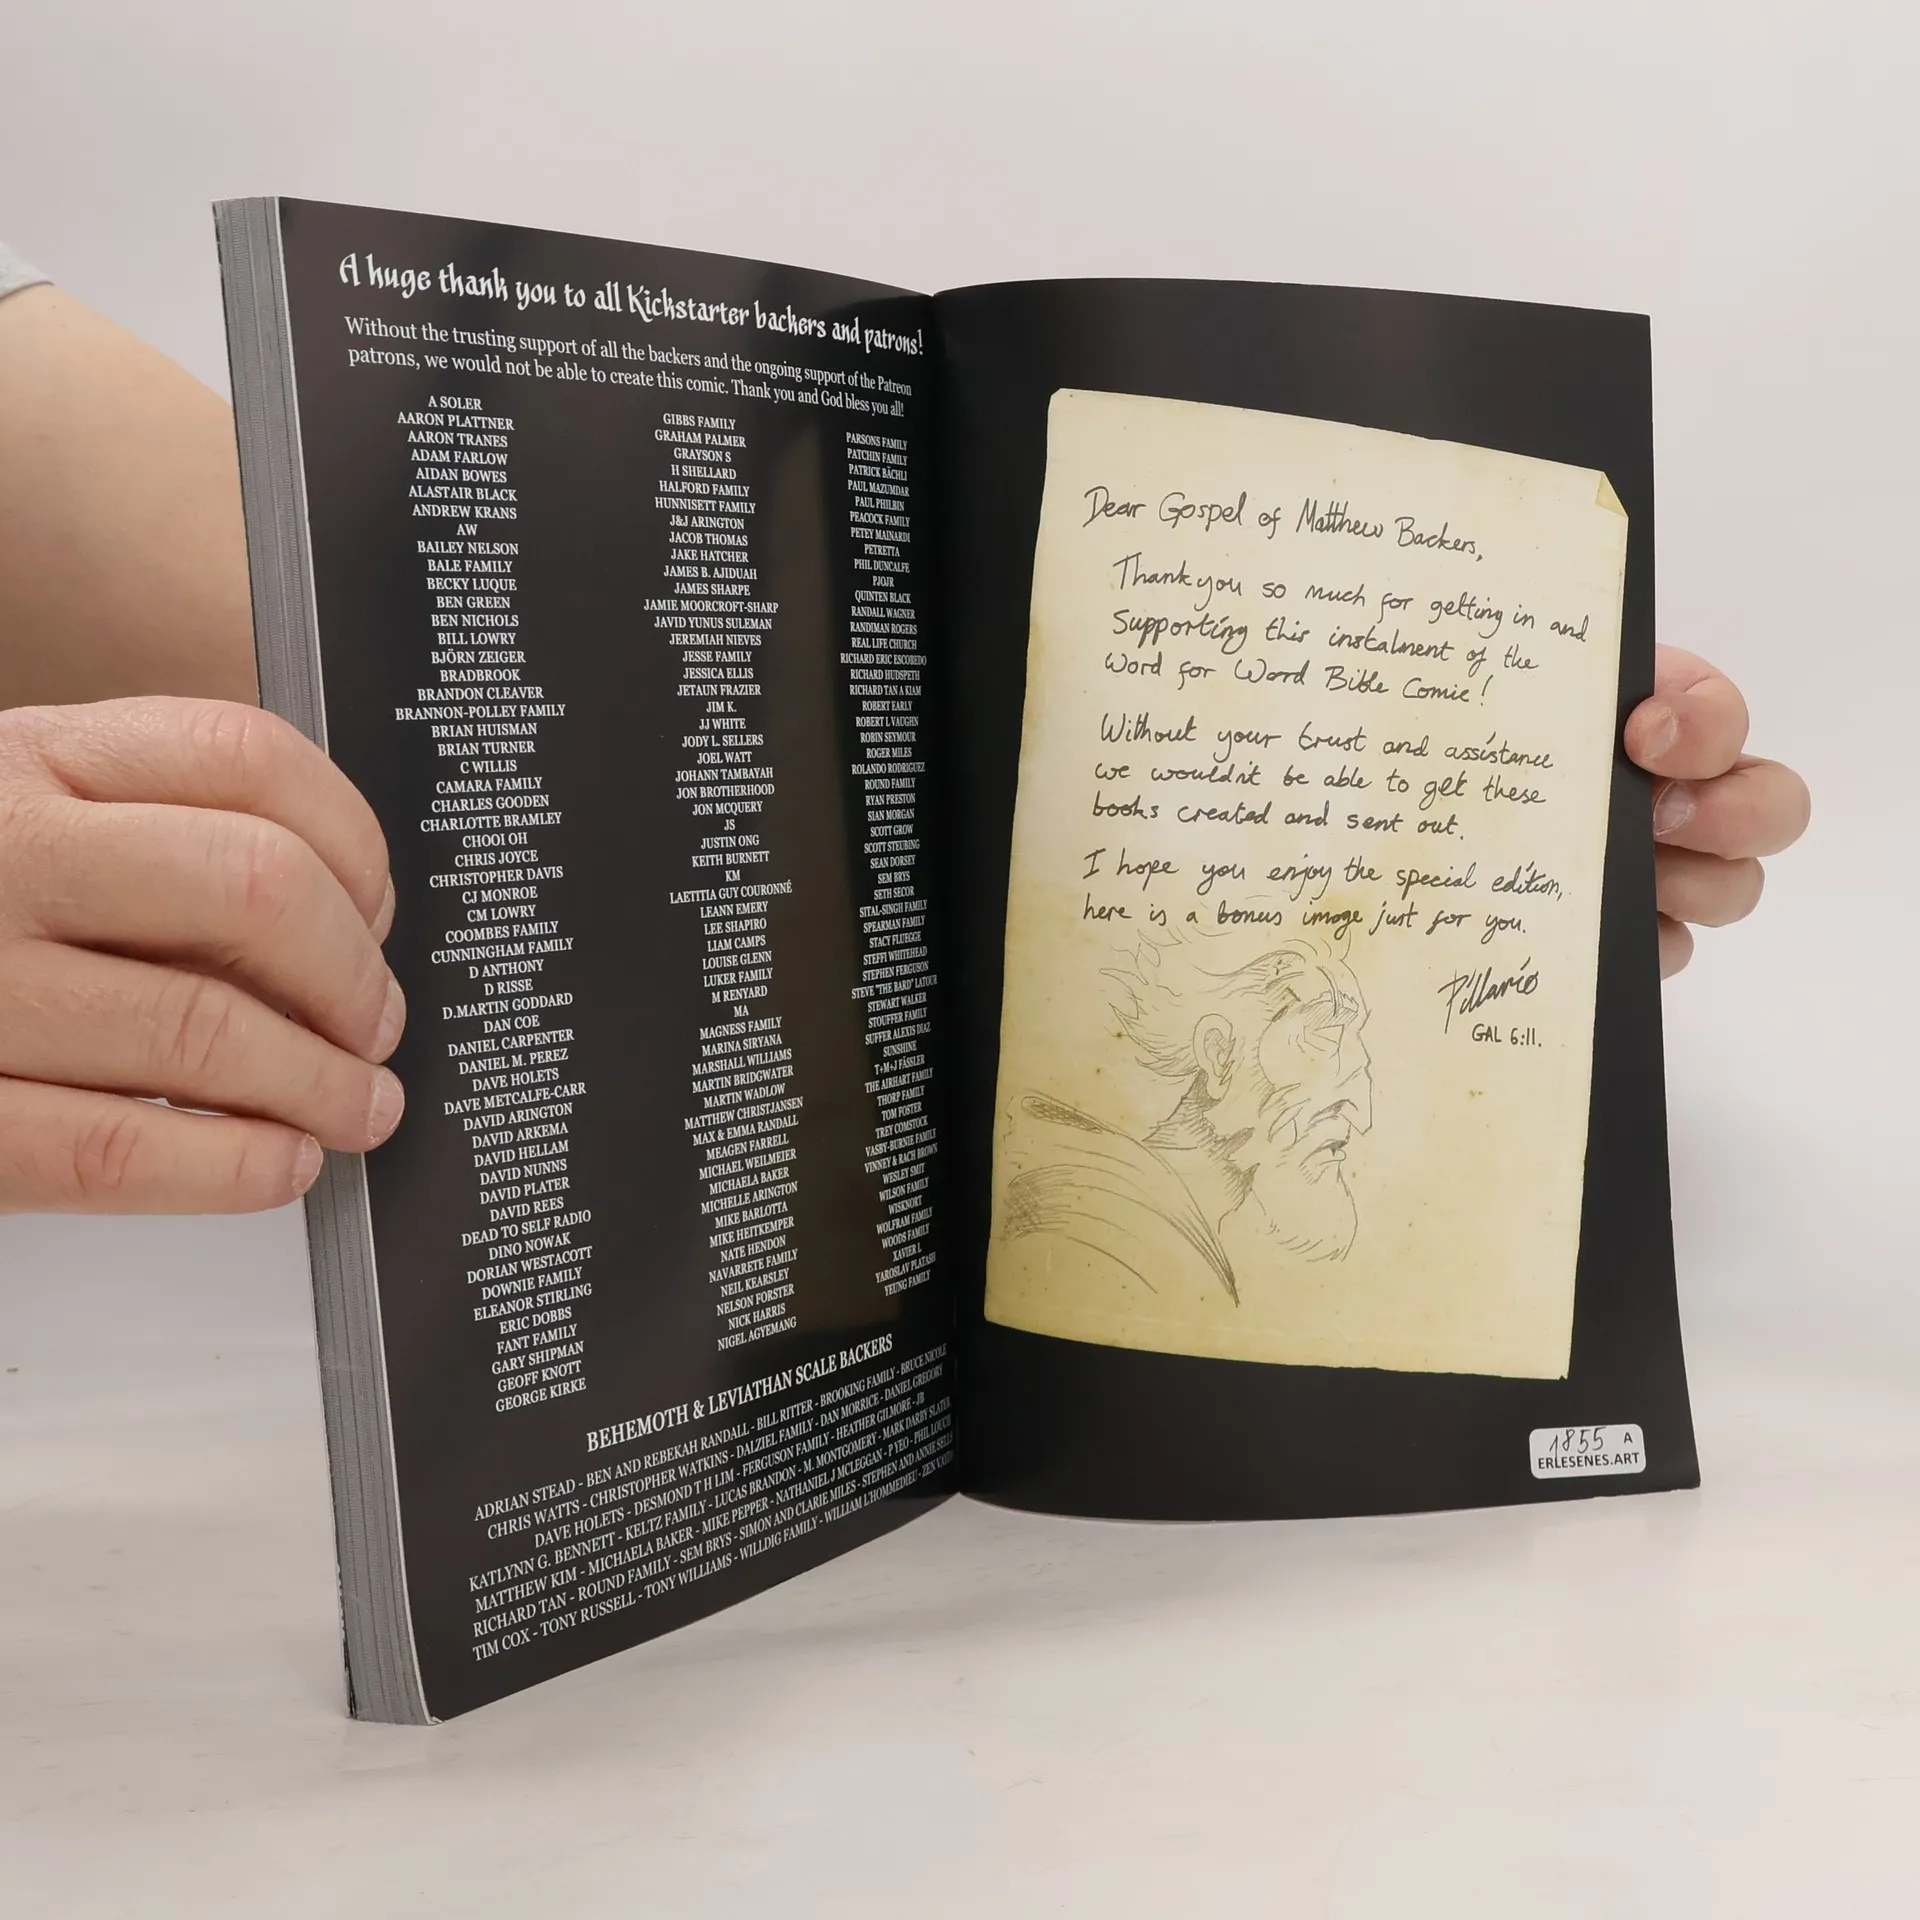 A huge thank you to all Kickstarter backers and patrons!
Without the trusting support of all the backers and the ongoing support of the Patreon
patrons, we would not be able to create this comic. Thank you and God bless you all!
A SOLER
AARON PLATTNER
AARON TRANES
ADAM FARLOW
AIDAN BOWES
ALASTAIR BLACK
ANDREW KRANS
AW
BAILEY NELSON
BALE FAMILY
BECKY LUQUE
BEN GREEN
BEN NICHOLS
BILL LOWRY
BJÖRN ZEIGER
BRADBROOK
BRANDON CLEAVER
BRANNON-POLLEY FAMILY
BRIAN HUISMAN
BRIAN TURNER
C WILLIS
CAMARA FAMILY
CHARLES GOODEN
CHARLOTTE BRAMLEY
CHOOI OH
CHRIS JOYCE
CHRISTOPHER DAVIS
CJ MONROE
CM LOWRY
COOMBES FAMILY
CUNNINGHAM FAMILY
D ANTHONY
D RISSE
D.MARTIN GODDARD
DAN COE
DANIEL CARPENTER
DANIEL M. PEREZ
DAVE HOLETS
DAVE METCALFE-CARR
DAVID ARINGTON
DAVID ARKEMA
DAVID HELLAM
DAVID NUNNS
DAVID PLATER
DAVID REES
DEAD TO SELF RADIO
DINO NOWAK
DORIAN WESTACOTT
DOWNIE FAMILY
ELEANOR STIRLING
ERIC DOBBS
FANT FAMILY
GARY SHIPMAN
GEOFF KNOTT
GEORGE KIRKE
GIBBS FAMILY
GRAHAM PALMER
GRAYSON S
H SHELLARD
HALFORD FAMILY
HUNNISETT FAMILY
J&J ARINGTON
JACOB THOMAS
JAKE HATCHER
JAMES B. AJIDUAH
JAMES SHARPE
JAMIE MOORCROFT-SHARP
JAVID YUNUS SULEMAN
JEREMIAH NIEVES
JESSE FAMILY
JESSICA ELLIS
JETAUN FRAZIER
JIM K.
JJ WHITE
JODY L. SELLERS
JOEL WATT
JOHANN TAMBAYAH
JON BROTHERHOOD
JON MCQUERY
JS
JUSTIN ONG
KEITH BURNETT
KM
LAETITIA GUY COURONNÉ
LEANN EMERY
LEE SHAPIRO
LIAM CAMPS
LOUISE GLENN
LUKER FAMILY
M RENYARD
MA
MAGNESS FAMILY
MARINA SIRYANA
MARSHALL WILLIAMS
MARTIN BRIDGWATER
MARTIN WADLOW
MATTHEW CHRISTJANSEN
MAX & EMMA RANDALL
MEAGEN FARRELL
MICHAEL WEILMEIER
MICHAELA BAKER
MICHELLE ARINGTON
MIKE BARLOTTA
MIKE HEITKEMPER
NATE HENDON
NAVARRETE FAMILY
NEIL KEARSLEY
NELSON FORSTER
NICK HARRIS
NIGEL AGYEMANG
PARSONS FAMILY
PATCHIN FAMILY
PATRICK BÄCHLI
PAUL MAZUMDAR
PAUL PHILBIN
PEACOCK FAMILY
PETEY MAINARDI
PETRETTA
PHIL DUNCALFE
PJOJR
QUINTEN BLACK
RANDALL WAGNER
RANDIMAN ROGERS
REAL LIFE CHURCH
RICHARD ERIC ESCOBEDO
RICHARD HUDSPETH
RICHARD TAN A KIAM
ROBERT EARLY
ROBERT L VAUGHN
ROBIN SEYMOUR
ROGER MILES
ROLANDO RODRIGUEZ
ROUND FAMILY
RYAN PRESTON
SIAN MORGAN
SCOTT GROW
SCOTT STEUBING
SEAN DORSEY
SEM BRYS
SETH SECOR
SITAL-SINGH FAMILY
SPEARMAN FAMILY
STACY FLUEGGE
STEFFI WHITEHEAD
STEPHEN FERGUSON
STEVE "THE BARD" LATOUR
STEWART WALKER
STOUFFER FAMILY
SUFFER ALEXIS DIAZ
SUNSHINE
T+M+J FÄSSLER
THE AIRHART FAMILY
THORP FAMILY
TOM FOSTER
TREY COMSTOCK
VASBY-BURNIE FAMILY
VINNEY & RACH BROWN
WESLEY SMIT
WILSON FAMILY
WISKNORT
WOLFRAM FAMILY
WOODS FAMILY
XAVIER L
YAROSLAV PLATASH
YEUNG FAMILY
BEHEMOTH & LEVIATHAN SCALE BACKERS
ADRIAN STEAD - BEN AND REBEKAH RANDALL - BILL RITTER - BROOKING FAMILY - BRUCE NICOLE
CHRIS WATTS - CHRISTOPHER WATKINS - DALZIEL FAMILY - DAN MORRICE - DANIEL GREGORY
DAVE HOLETS - DESMOND T H LIM - FERGUSON FAMILY - HEATHER GILMORE - JB
KATLYNN G. BENNETT - KELTZ FAMILY - LUCAS BRANDON - M. MONTGOMERY - MARK DARBY SLATER
MATTHEW KIM - MICHAELA BAKER - MIKE PEPPER - NATHANIEL J MCLEGGAN - P YEO - PHIL LOUCH
RICHARD TAN - ROUND FAMILY - SEM BRYS - SIMON AND CLARIE MILES - STEPHEN AND ANNIE SELLS
TIM COX - TONY RUSSELL - TONY WILLIAMS - WILLDIG FAMILY - WILLIAM L'HOMMEDIEU - ZEN
Dear Gospel of Matthew Backers,
Thank you so much for getting in and
supporting this instalment of the
Word for Word Bible Comic!
Without your trust and assistance
we wouldn't be able to get these
books created and sent out.
I hope you enjoy the special edition,
here is a bonus image just for you.
Pillario
GAL 6:11.
1855 A
ERLESENES.ART